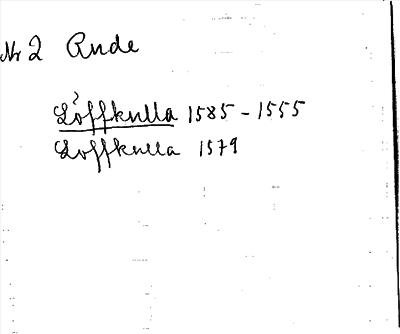 Nr 2 Rude
?
Löffkulla 1585 - 1555
Loffkulla 1579